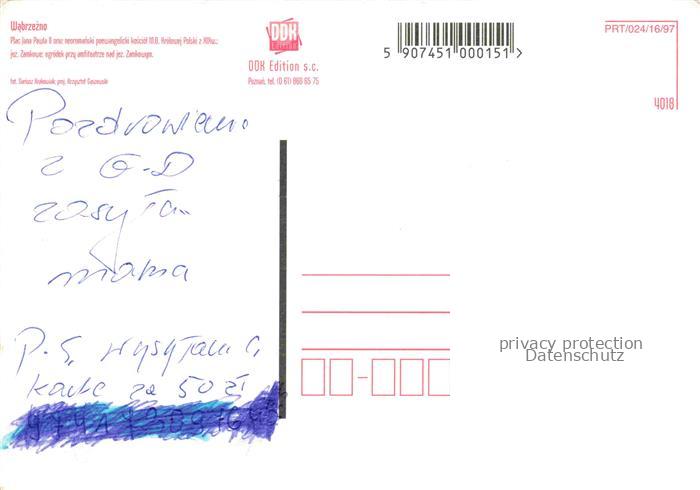 Wąbrzeźno
Plac Jana Pawła II oraz neoromański poewangelicki kościół M.B. Królowej Polski z XIXw.;
jez. Zamkowe; ogródek przy amfiteatrze nad jez. Zamkowym.
fot. Dariusz Krakowiak; proj. Krzysztof Gaszewski
DDK
Edition
DDK Edition s.c.
Poznań, tel. (0 61) 868 65 75
5 907451 000151 >
PRT/024/16/97
4018
Pozdrowienia
z G-D
zasyła
mama
P.S. wysyłam Ci
kartę za 50 zł
privacy protection
Datenschutz